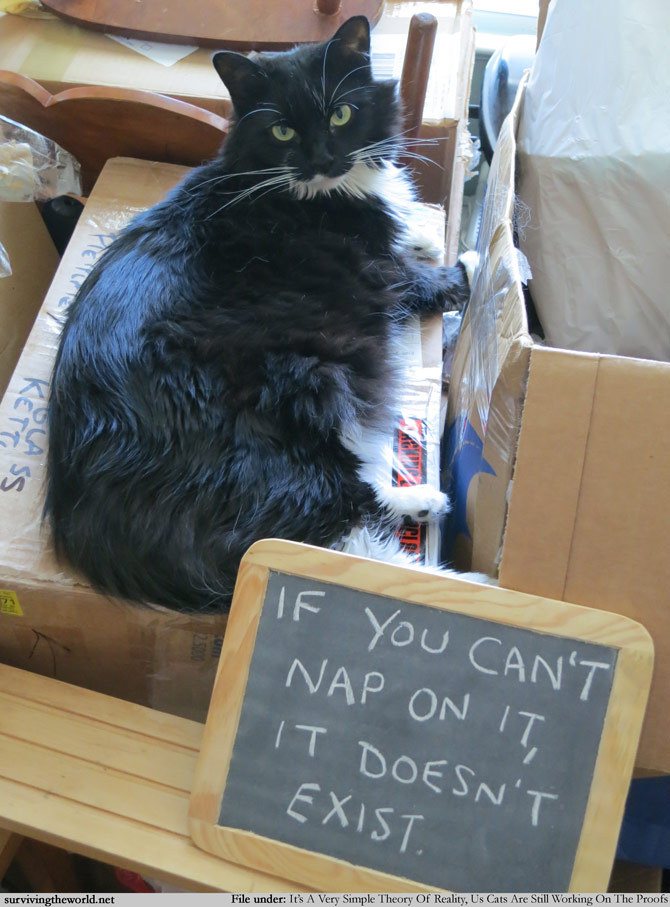 KOLA
KETTLESS
IF YOU CAN'T
NAP ON IT,
IT DOESN'T
EXIST.
survivingtheworld.net
File under: It's A Very Simple Theory Of Reality, Us Cats Are Still Working On The Proofs